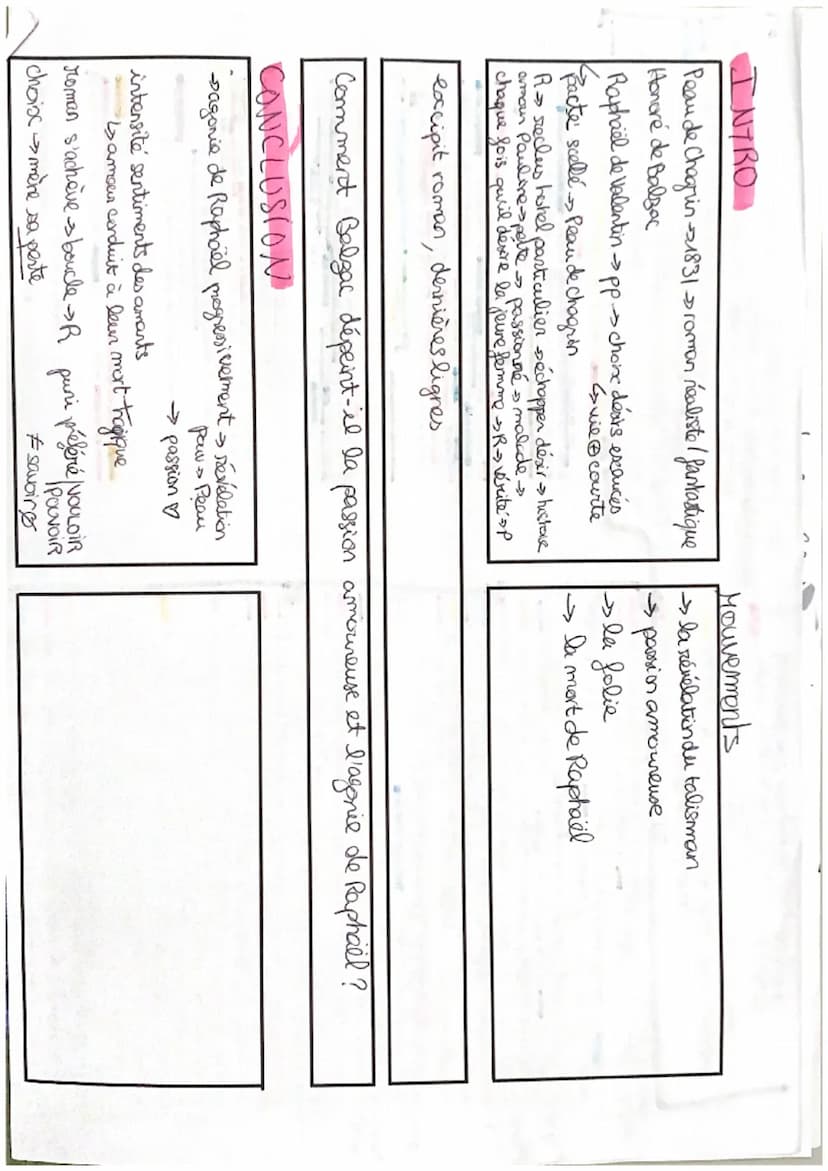 INTRO
Peau de Chagrin → 1831 → roman réaliste / fantastique
Honoré de Balzac
Raphaël de Valentin → pp → choix désirs exaucés
↳ vie ⊕ courte
↳ pacte scellé → Peau de chagrin
R → reclus hotel particulier → échapper désir → histoire
amour Pauline → pacte → passionné → malade →
chaque fois qu'il désire la jeune femme → R → vérité → P
Mouvements
→ la révélation du talisman
→ passion amoureuse
→ la folie
→ la mort de Raphaël
excipit roman, dernières lignes
Comment Balzac dépeint-il la passion amoureuse et l'agonie de Raphaël ?
CONCLUSION
→ agonie de Raphaël progressivement → révélation
pouv → Peau
→ passion ♡
intensité sentiments des amants
↳ amour conduit à leur mort tragique
roman s'achève → boucle → R puni préféré / vouloir
/ pouvoir
choix → mène sa perte ≠ savoir